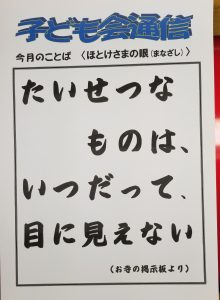 子ども会通信
今月のことば 〈ほとけさまの眼(まなざし)〉
たいせつな
ものは、
いつだって、
目に見えない
(お寺の掲示板より)